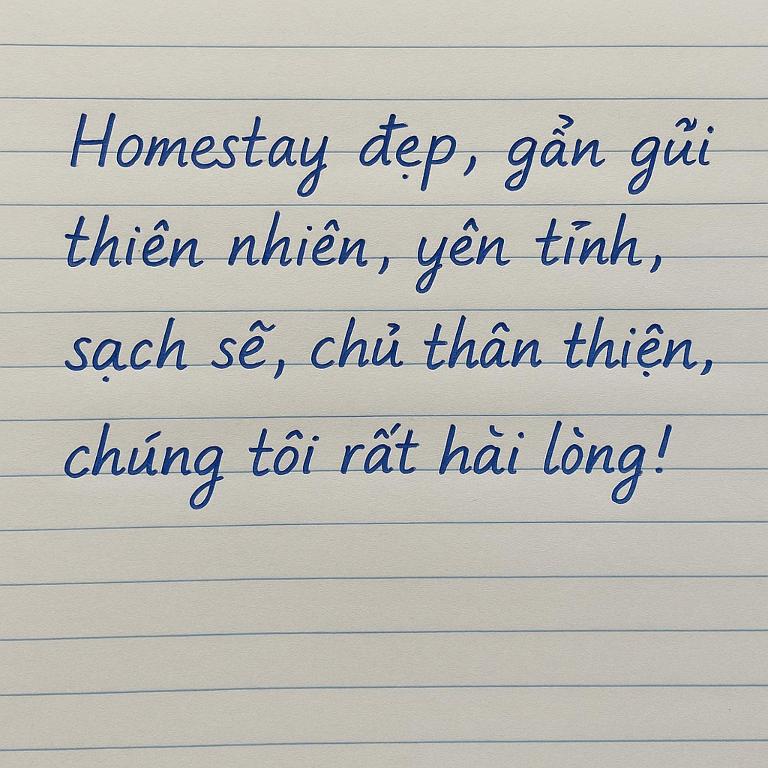 Homestay đẹp, gẩn gũi
thiên nhiên, yên tĩnh,
sạch sẽ, chủ thân thiện,
chúng tôi rất hài lòng!